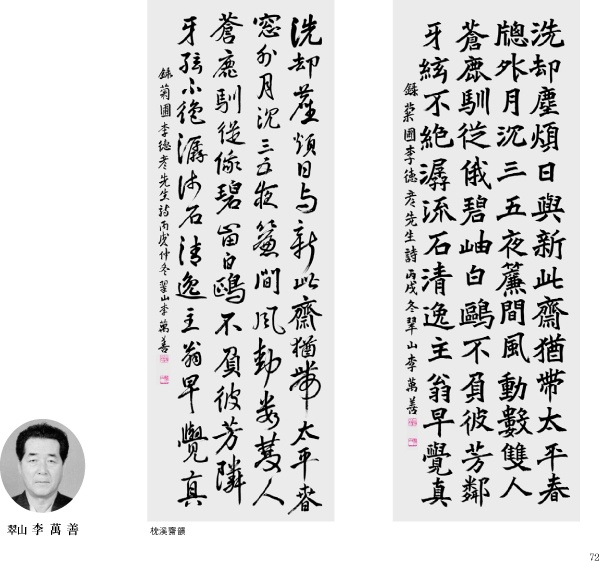 洗却塵煩日與新此齋猶帶太平春
牕外月沉三五夜簾間風動數雙人
蒼鹿馴從俄碧岫白鷗不負彼芳鄰
牙絃不絶潺流石清逸主翁早覺真
錄菊圃李德彦先生詩丙戌冬翠山李萬善
洗却塵煩日与新此齋猶帶太平春
窓外月沉三五夜簾間風動数雙人
蒼鹿馴從俄碧峀白鷗不負彼芳隣
牙絃不絶潺流石清逸主翁早覺真
錄菊圃李德彦先生詩丙戌仲冬翠山李萬善
翠山 李 萬 善
枕溪齋韻
72